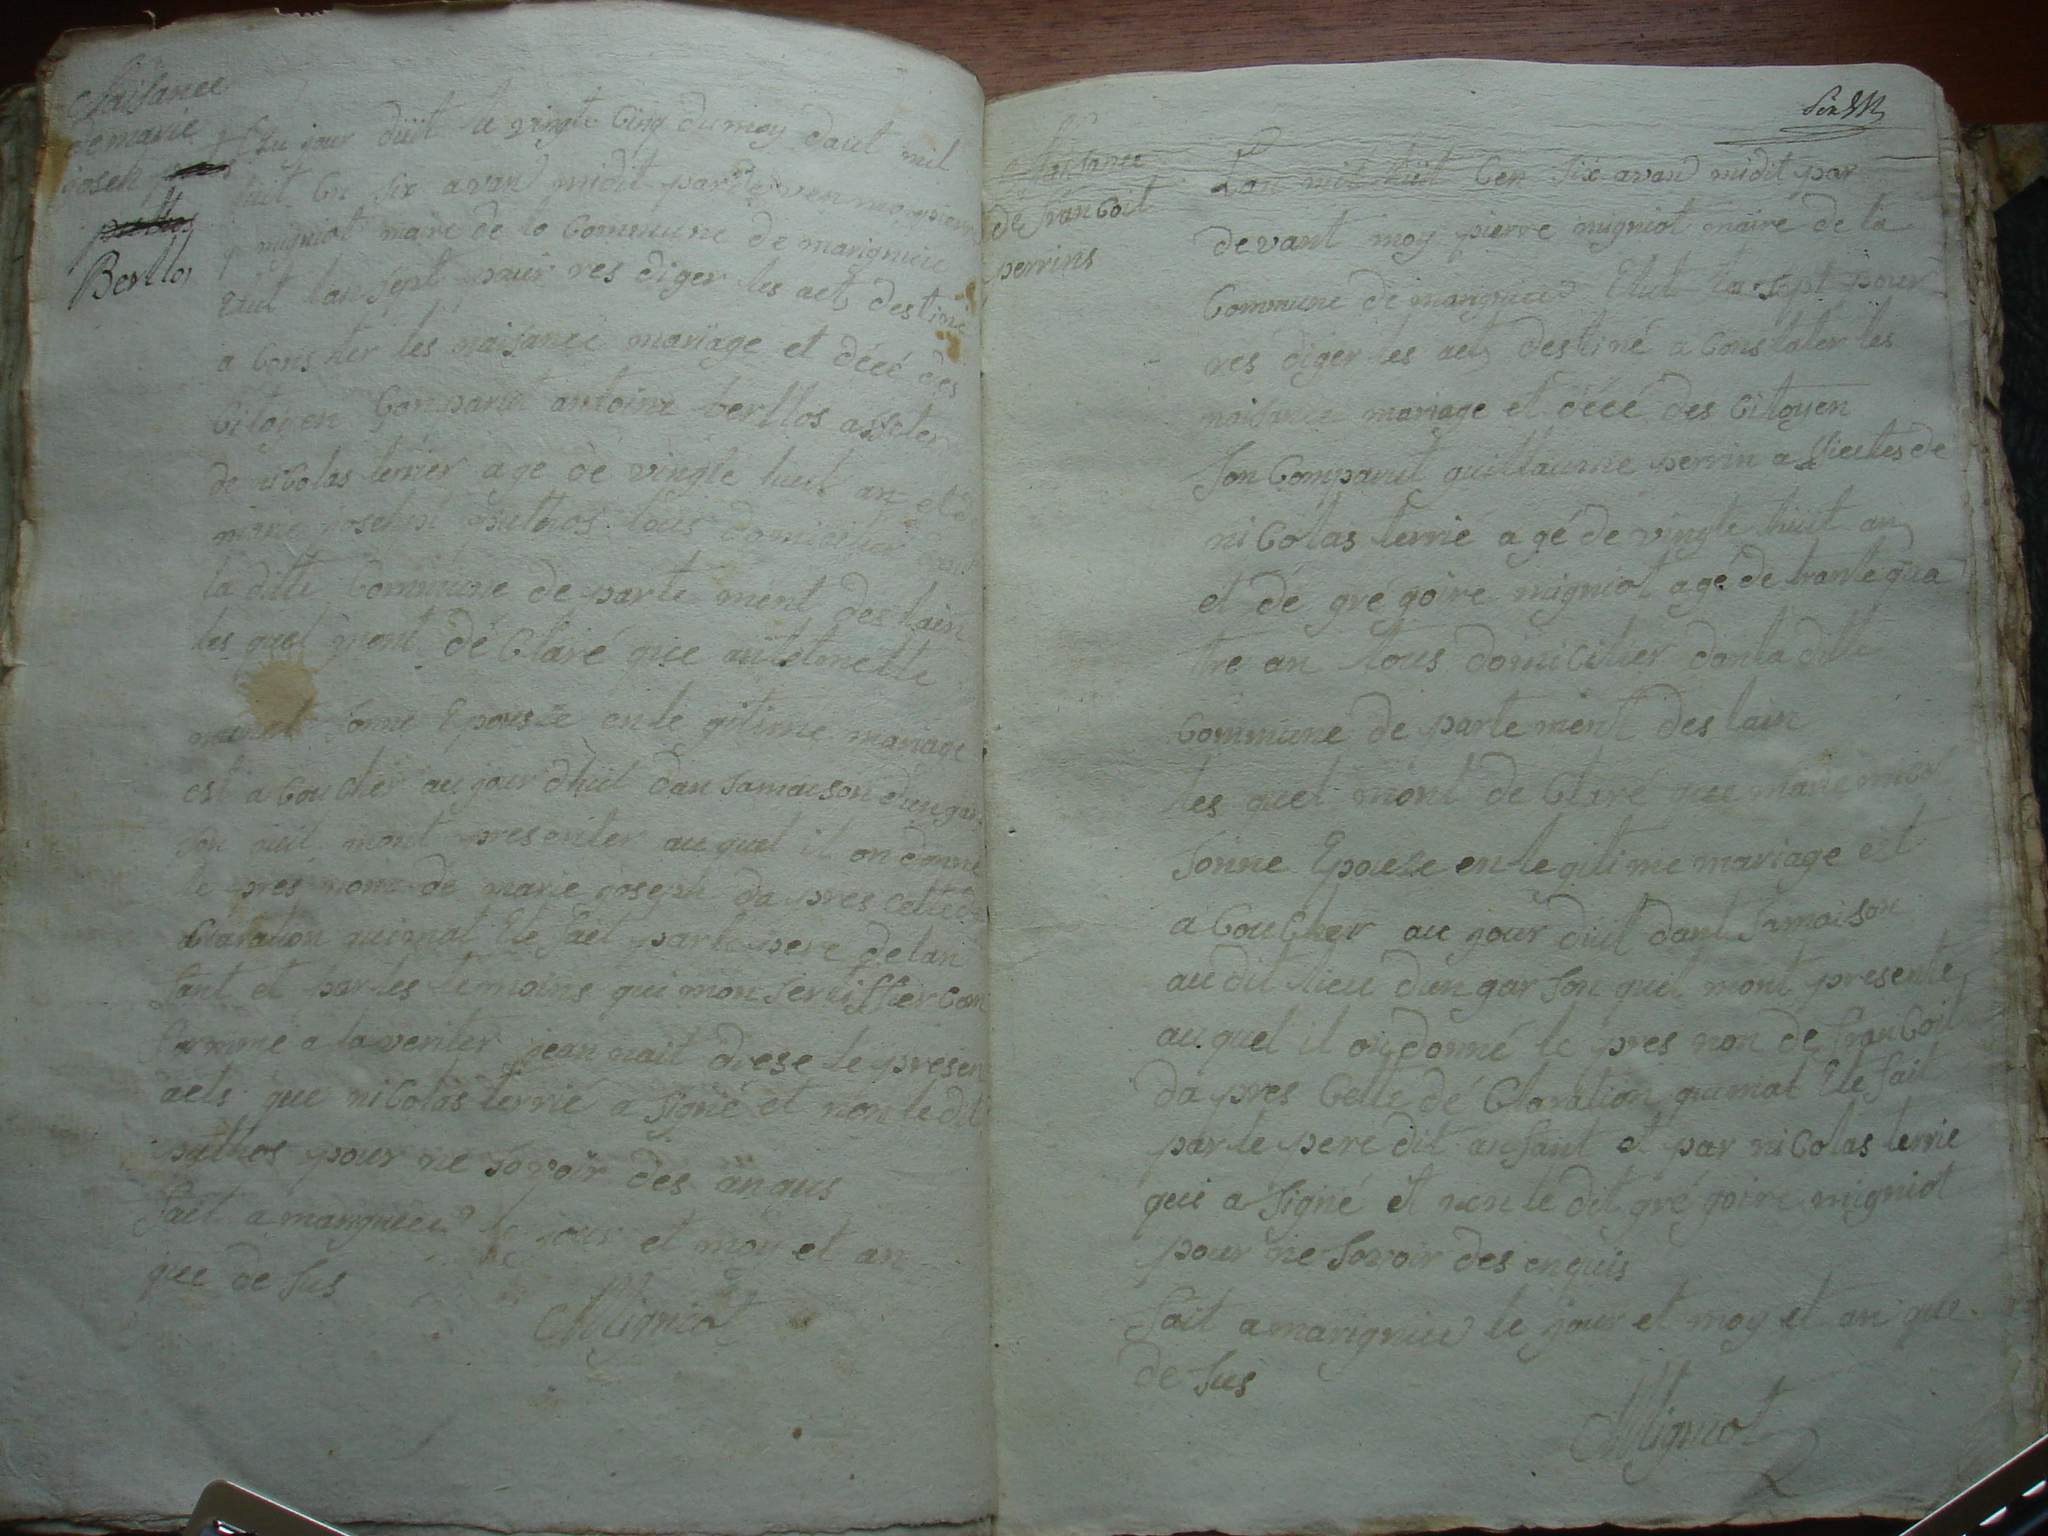 Naisance
de marie
joseph
puthos
Berllos
Au jour duit le vingte Cinq du moy daut mil
huit Cen six avan midit par devan moy pierre
migniot maire de la Commune de marignieu
Elut lan sept pour res diger les acts destiné
a Conster les naisance mariage et décé des
Citoyen Comparut antoine berllos assister
de nicolas terrier age de vingte huit an et de
marie joseph puthos tous domicilier dans
la ditte Commune de parte ment des lain
les quel mont dé Claré que antoinette
sonne Epouze en le gitime mariage
est a Coucher au jour dhuit dan samaison dun gar
son quil mont presenter au quel il on donné
le pres nom de marie joseph da pres cette dé
Claration qui mat Ete fait par le pere de lan
fant et par les temoins qui mon sertiffier Con
forme a la veriter jean nait drese le presen
acts que nicolas terrié a signé et non le dit
puthos pour ne savoir des anquis
fait a marignieu le jour et moy et an
que de sus
Migniot
Naisance
de francoit
perrins
Lan mil huit Cen six avan midit par
devant moy pierre migniot maire de la
Commune de marignieu Elut la sept pour
res diger les acts destiné a Constater les
naisance mariage et décé des Citoyen
son Comparut guillaume perrin a ssistes de
nicolas terrié agé de vingte huit an
et dé gré goire migniot agé de trante qua
tre an tous domicilier dan la ditte
Commune de parte ment des lain
les quel mont de Claré que marie
sonne Epouze en legiti me mariage est
a CouCher au jour duit dant samaison
au dit lieu dun gar son quil mont presente
au quel il on donné le pres non de franCoit
da pres Celle dé Claration qui mat Ete fait
par le pere dit anfant et par nicolas terrie
qui a signé et non le dit gré goire migniot
pour ne savoir des enquis
fait a marignieu le jour et moy et an que
de sus
Migniot